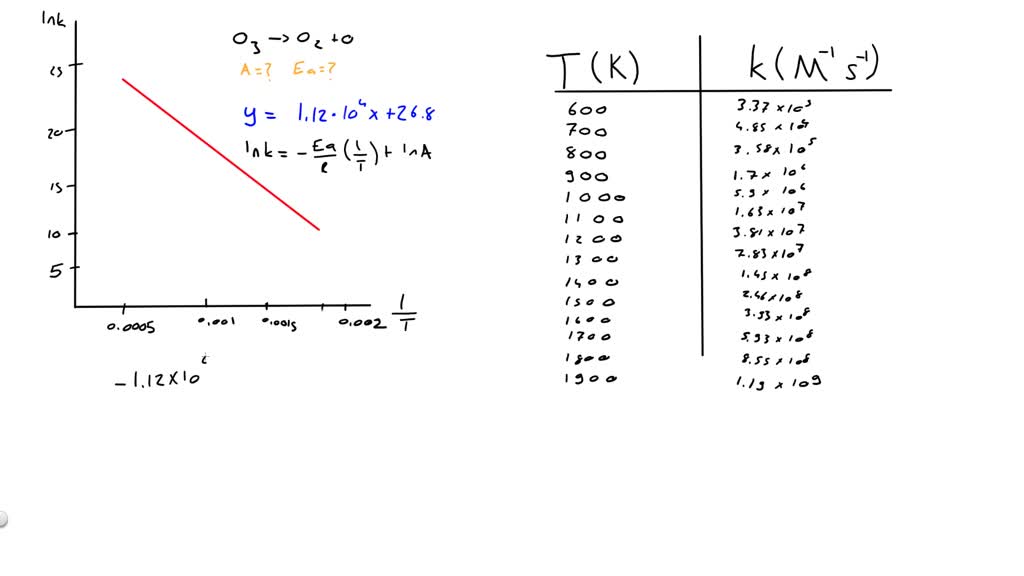 lnk
25
20
15
10
5
0.0005
0.001
0.0015
0.002
1/T
O3 → O2 + O
A=? Ea=?
y = 1.12·10^4x+26.8
lnk = - Ea/R (1/T) + lnA
-1.12×10
T (K) k (M^-1 s^-1)
600 3.37 × 10^3
700 4.85 × 10^4
800 3.58 × 10^5
900 1.7 × 10^6
1000 5.9 × 10^6
1100 1.63 × 10^7
1200 3.81 × 10^7
1300 7.83 × 10^7
1400 1.45 × 10^8
1500 2.46 × 10^8
1600 3.93 × 10^8
1700 5.93 × 10^8
1800 8.55 × 10^8
1900 1.19 × 10^9